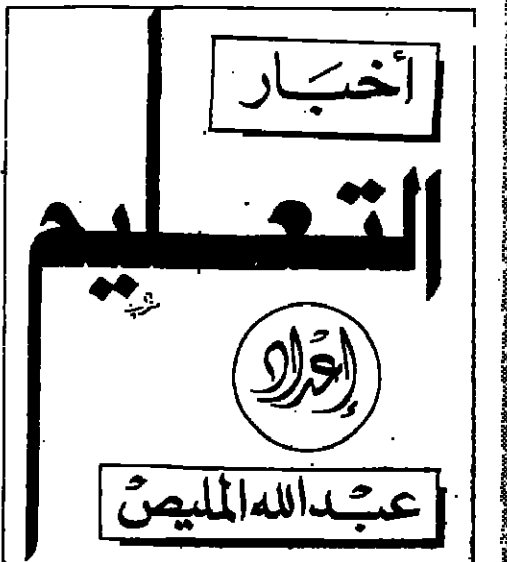 أخبار
التعليم
إعداد
عبدالله المليص